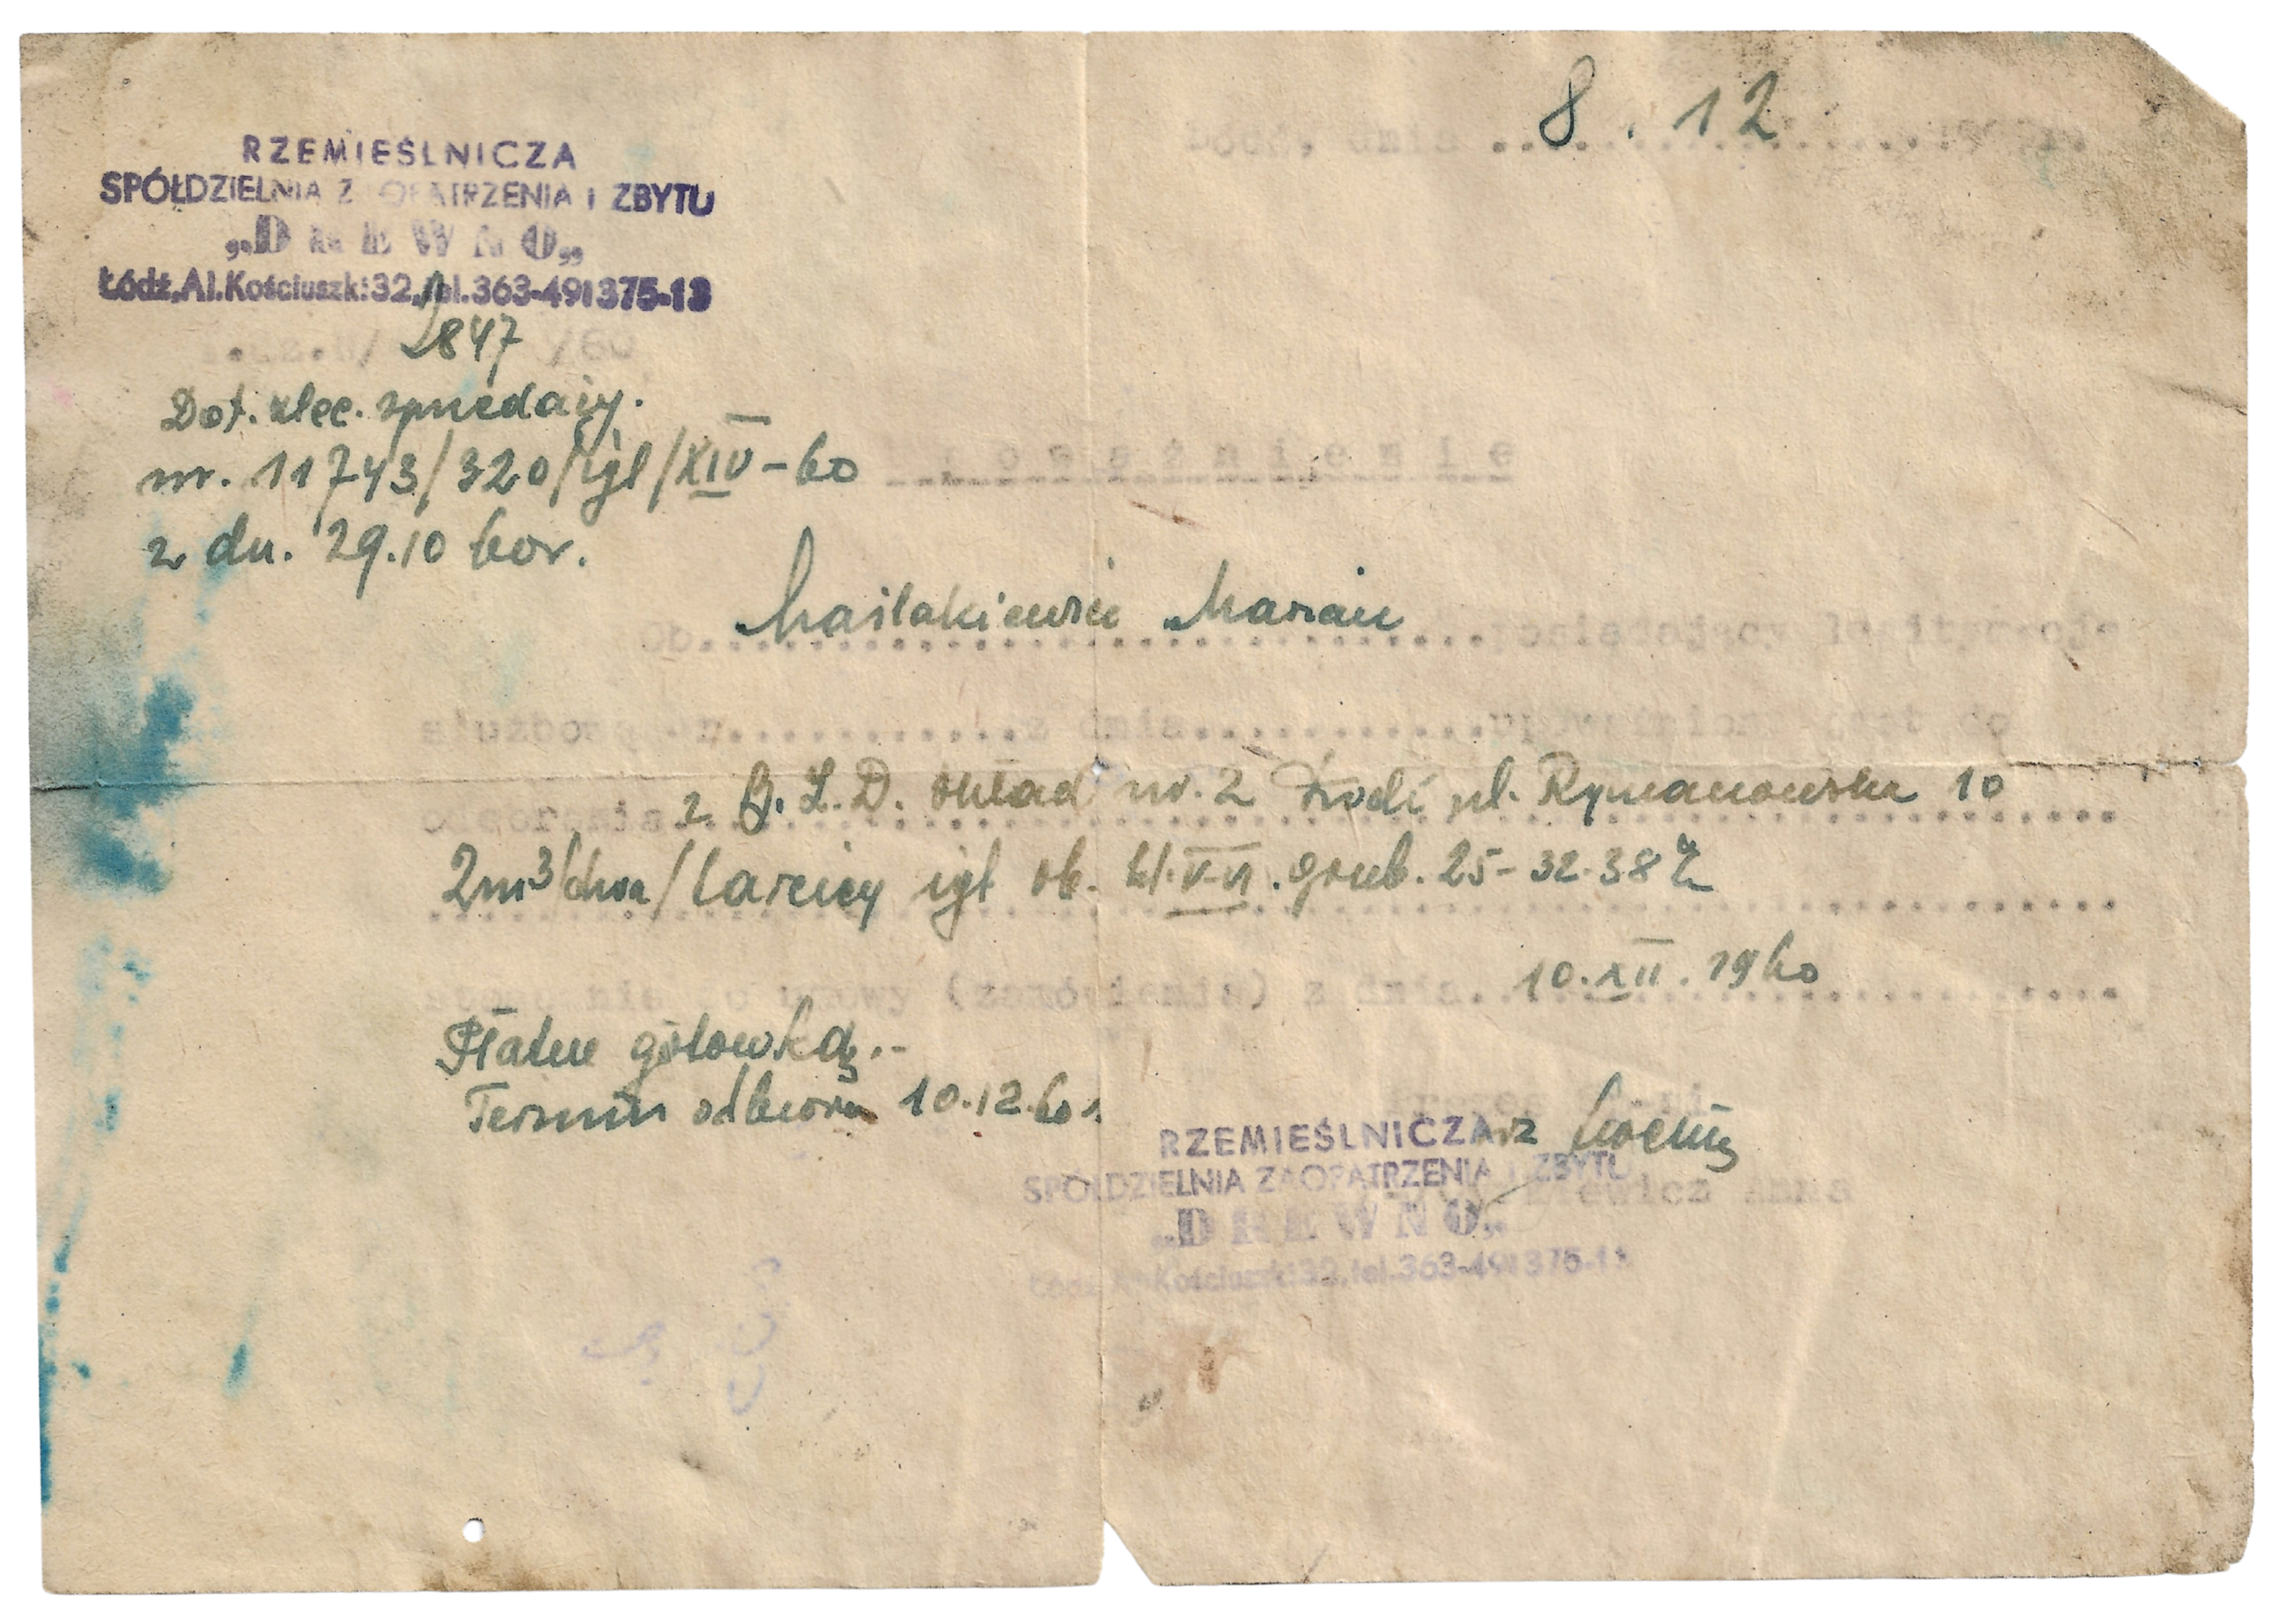 8.12
Łódź, dnia ....................196 r.
RZEMIEŚLNICZA
SPÓŁDZIELNIA ZAOPATRZENIA I ZBYTU
„DREWNO„
Łódź, Al. Kościuszki 32, tel. 363-49 i 375-13
L.dz.H/ 1847 /60
Dot. zlec. sprzedaży.
nr. 11743/320/igl/XIV-60
z dn. 29.10 60r.
Upoważnienie
Ob. Maślakiewicz Marian posiadający legitymację
służbową nr............z dnia............upoważniony jest do
odebrania z B.L.D. skład nr. 2 Łódź ul. Rymanowska 10
2m3/dwa/tarcicy igl ob. kl. V-VI. grub. 25-32-38
stosownie do umowy (zamówienia) z dnia 10.XII.1960
Płatne gotówką.-
Termin odbioru 10.12.60r.
RZEMIEŚLNICZA
SPÓŁDZIELNIA ZAOPATRZENIA I ZBYTU
Anna
„DREWNO„
Łódź, Al. Kościuszki 32, tel. 363-49 i 375-13